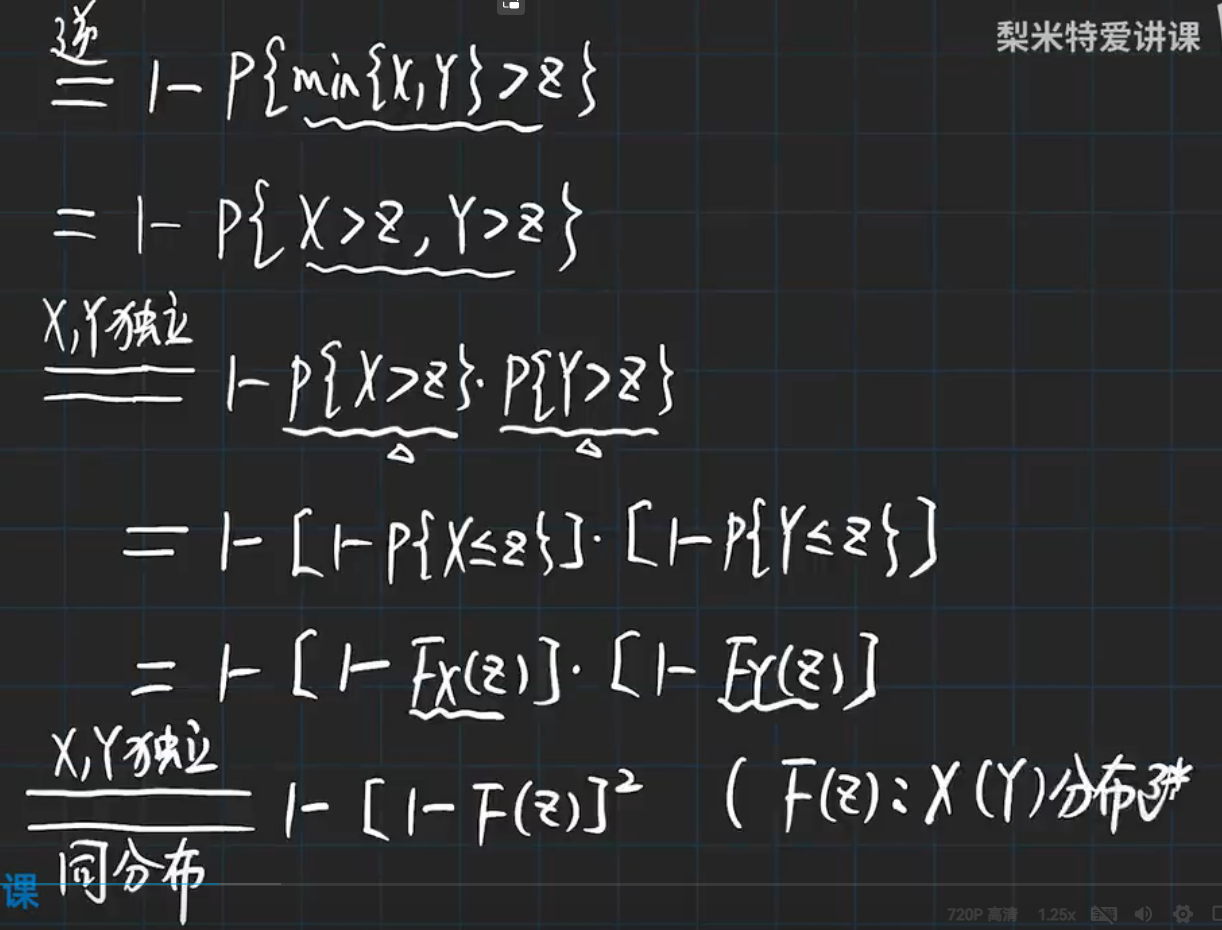 梨米特爱讲课
逆
= 1- P{min{X,Y}>z}
= 1- P{X>z, Y>z}
X,Y独立
= 1-P{X>z}·P{Y>z}
= 1-[1-P{X≤z}]·[1-P{Y≤z}]
= 1-[1-Fx(z)]·[1-FY(z)]
X,Y独立
= 1-[1-F(z)]² ( F(z):X(Y)分布
同分布
课
720P 高清 1.25x